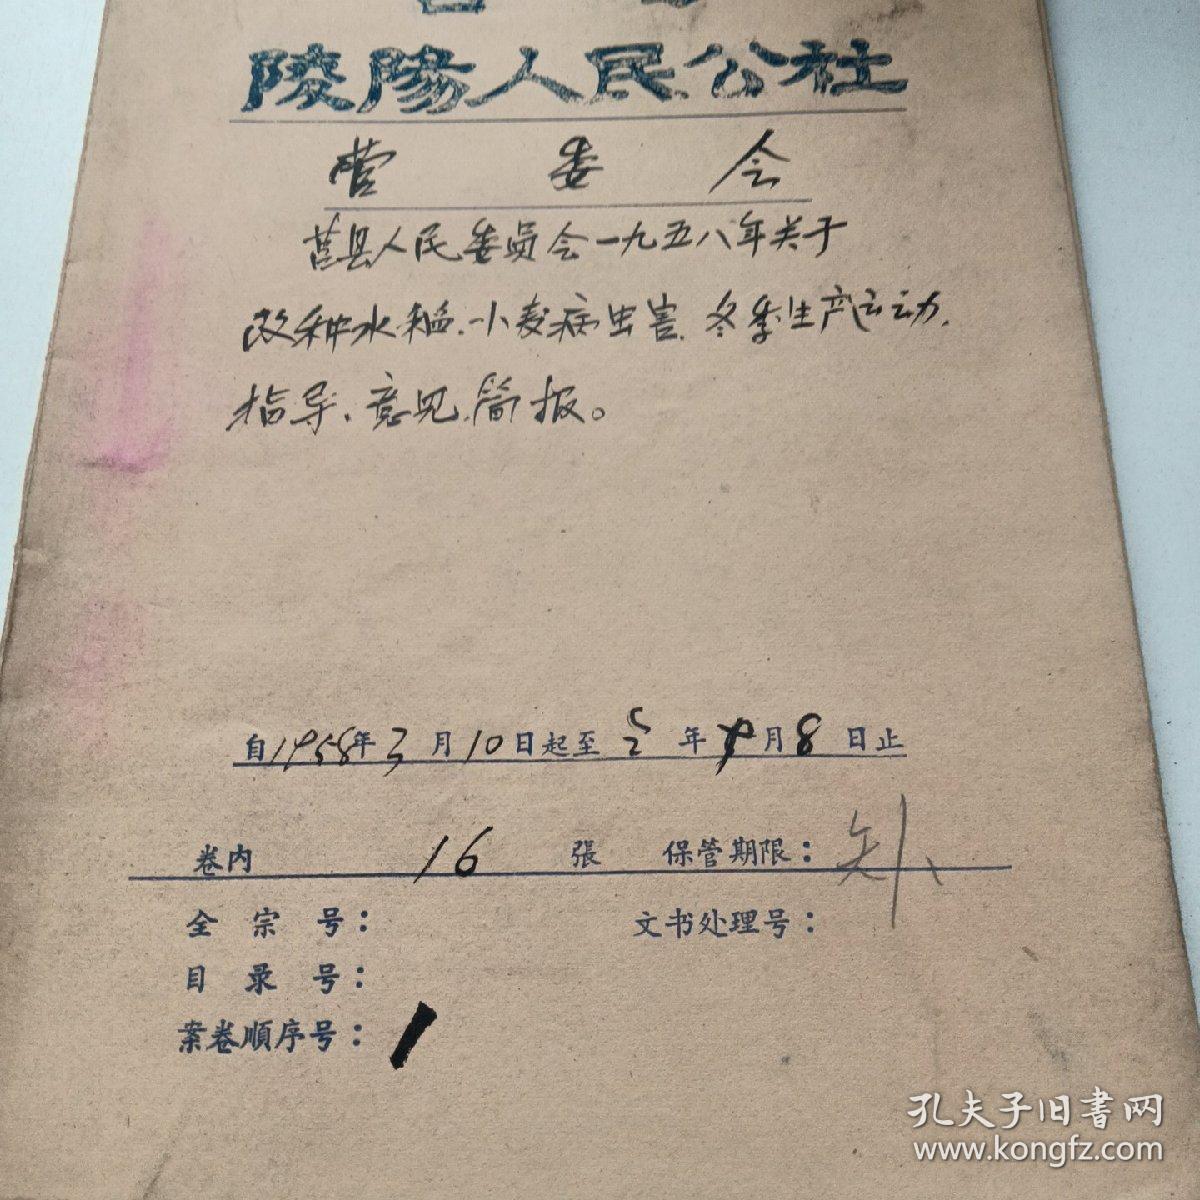 陵陽人民公社
营委会
莒县人民委员会一九五八年关于
改种水稻.小麦病虫害.冬季生产运动.
指导、意见.简报。
自1958年3月10日起至 年 月8日止
卷内 16 張 保管期限：
全宗号： 文书处理号：
目录号：
案卷順序号：1
孔夫子旧書网
www.kongfz.com